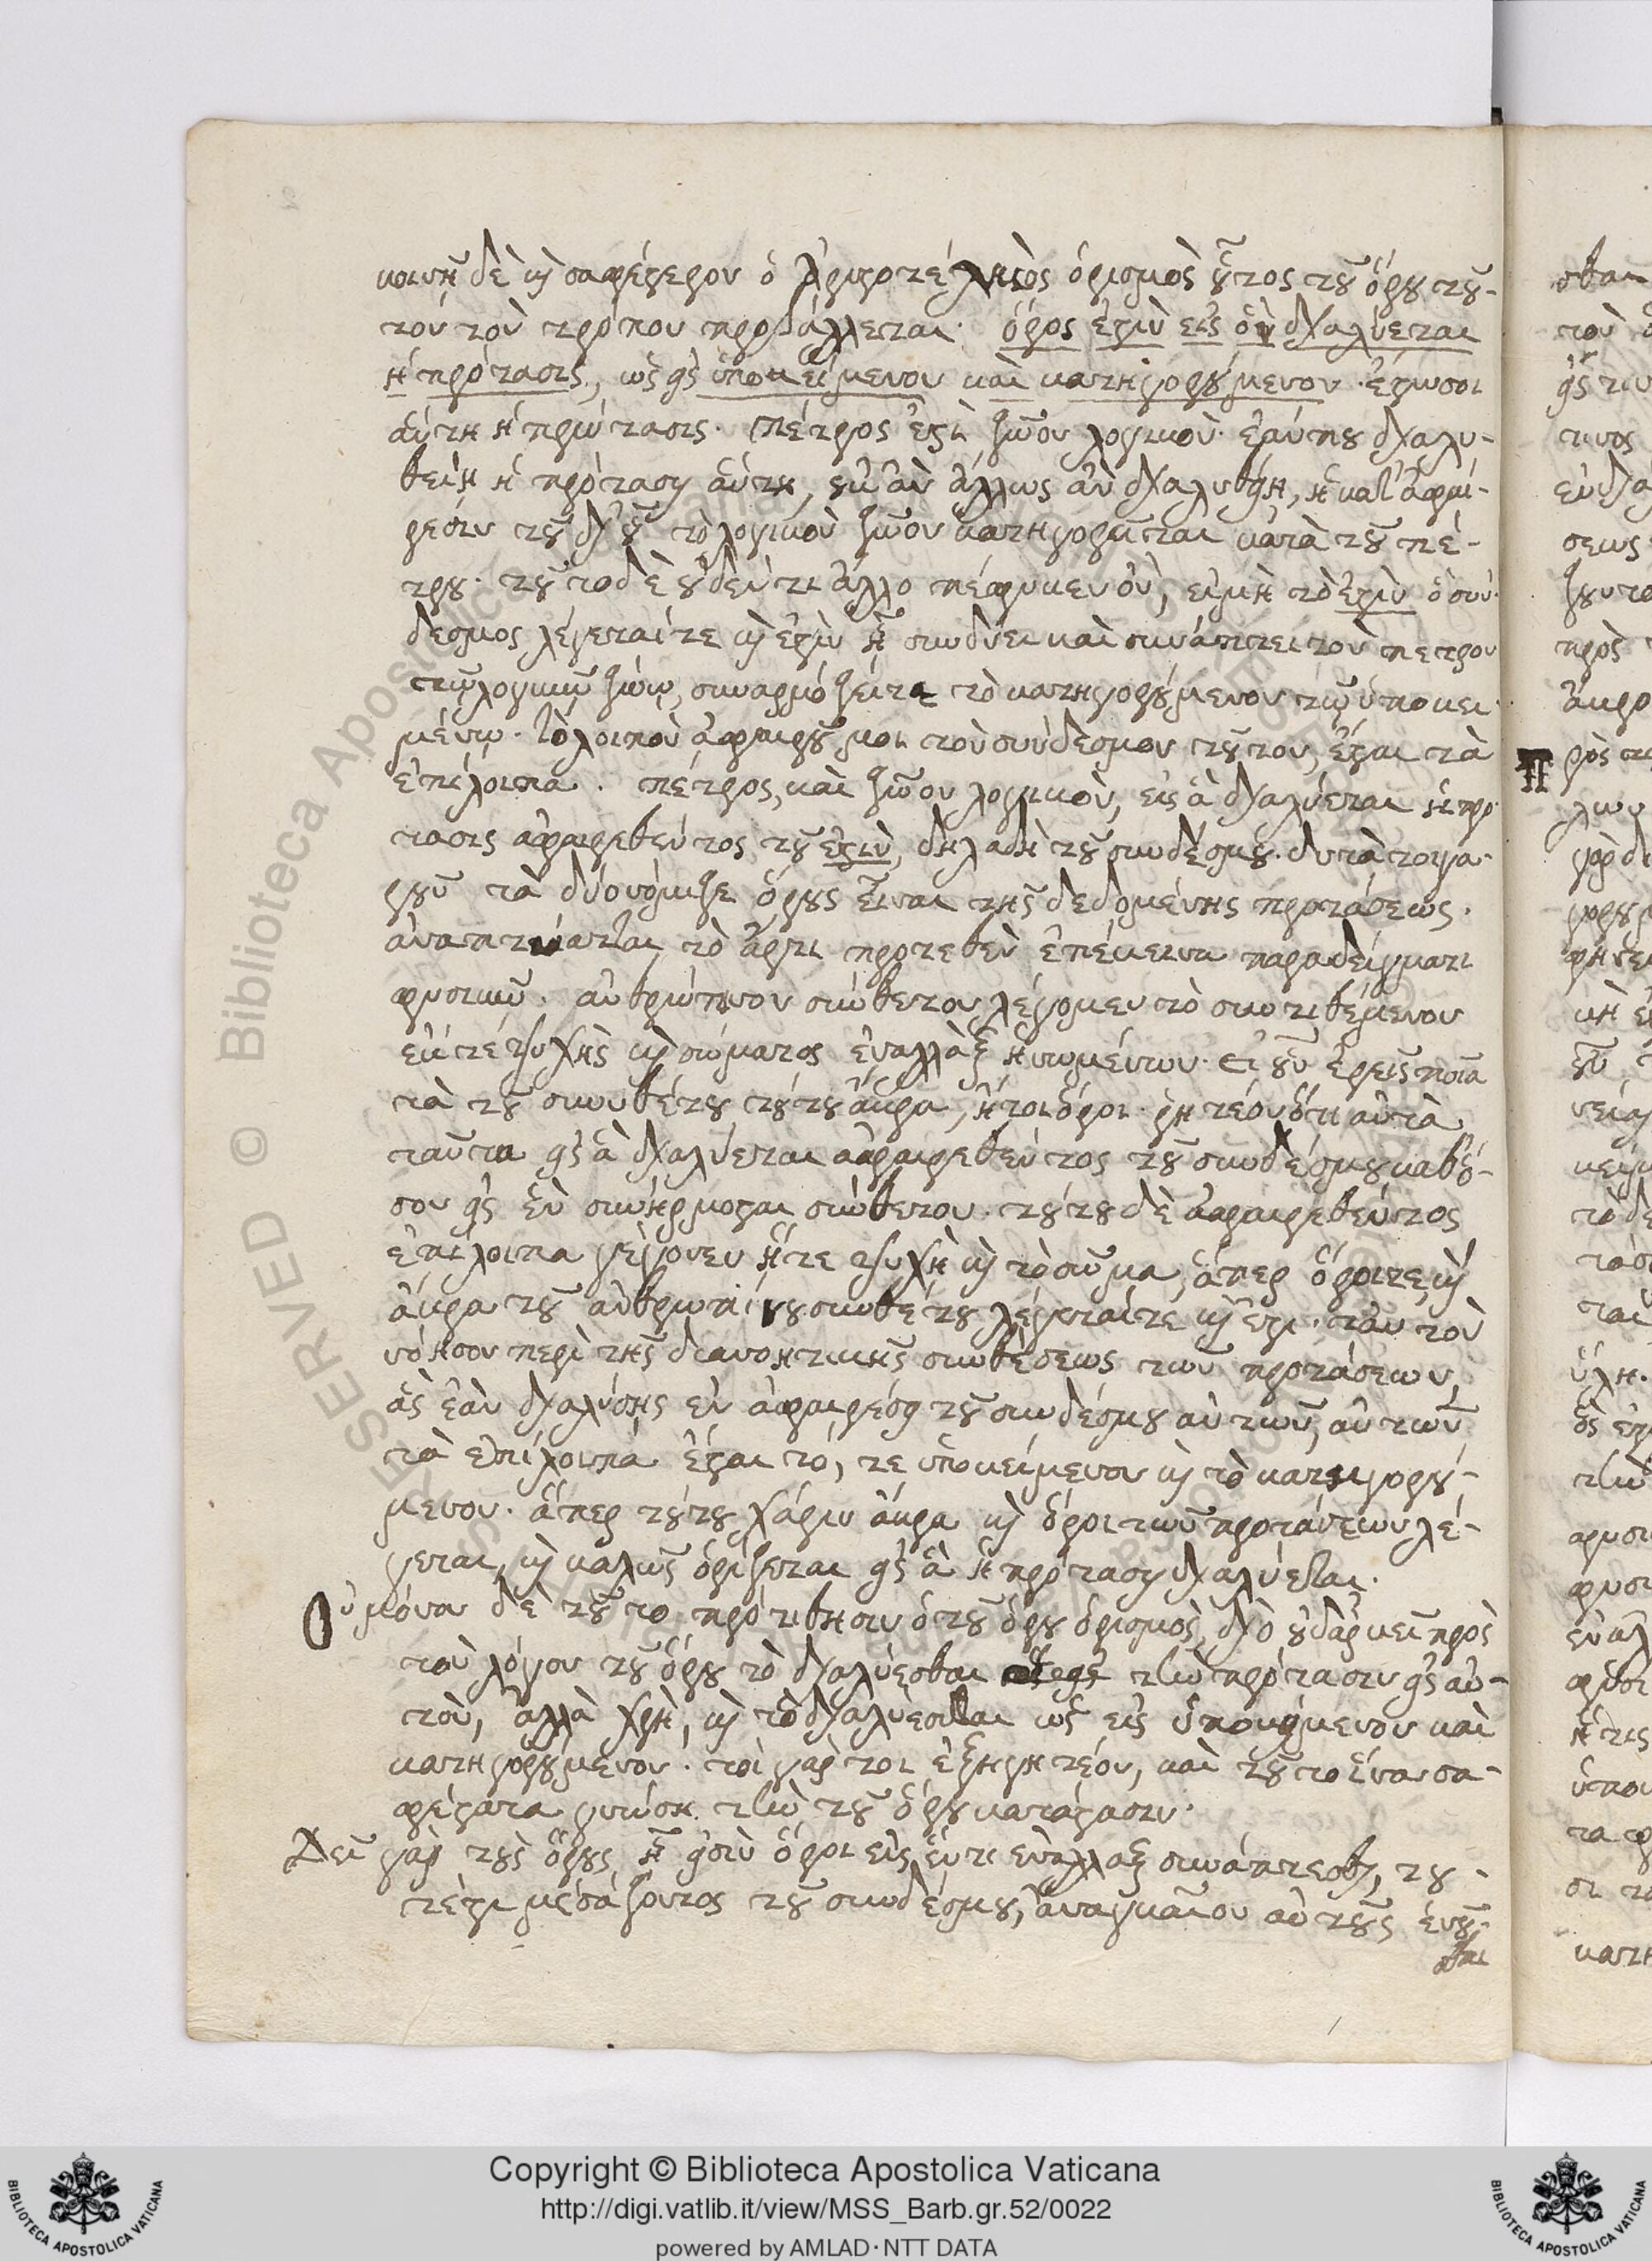 κοινῇ δὲ καὶ σαφέστερον ὁ Ἀριστοτέλειος ὁρισμὸς οὗτος τοῦ ὅρου τοῦ-
τον τὸν τρόπον προβάλλεται· ὅρος ἐστὶν εἰς ὃν διαλύεται
ἡ πρότασις, ὡς εἰς ὑποκείμενον καὶ κατηγορούμενον. ἔστω σοι
αὕτη ἡ πρώτασις. Πέτρος ἐστὶ ζῶον λογικόν. ἐάν που διαλυ-
θείη ἡ πρότασις αὕτη, οὐκ ἂν ἄλλως ἂν διαλυθῇ, ἢ κατ' ἀφαί-
ρεσιν τοῦ δι' οὗ τὸ λογικὸν ζῶον κατηγορεῖται κατὰ τοῦ πέ-
τρου. τοῦτο δὲ οὐδέν τι ἄλλο πέφυκεν ὂν, εἰμὴ τὸ ἐστὶν ὃ σύν-
δεσμος λέγεταί τε καὶ ἐστὶν ᾗ συνδύει καὶ συνάπτει τὸν πετρον
τῷ λογικῷ ζώῳ, συναρμόζει τὸ κατηγορούμενον τῷ ὑποκει-
μένῳ. τὸ λοιπὸν ἀφαιρουμένου τὸν σύνδεσμον τοῦτον, ἔσται τὰ
ἐπίλοιπα. πέτρος, καὶ ζῶον λογικὸν, εἰς ἃ διαλύεται ἡ πρό-
τασις ἀφαιρεθέντος τοῦ ἐστὶν, δηλαδὴ τοῦ συνδέσμου. αὐτὰ τοιγα-
ροῦν τὰ δύο νόμιζε ὅρους εἶναι τῆς δεδομένης προτάσεως.
τὸ ἄρτι προτεθὲν παραδείγματι
φυσικῷ. ἀνθρώπινον σύνθετον λέγομεν τὸ συντιθέμενον
ἐκ τε ψυχῆς καὶ σώματος ἐναλλὰξ ἡνωμένων. Εἰ οὖν ἐρεῖς ποῖα
τὰ τοῦ συνθέτου τούτου ἄκρα, ἤτοι ὅροι. ῥητέον ὅτι αὐτὰ
ταῦτα εἰς ἃ διαλύεται ἀφαιρεθέντος τοῦ συνδέσμου καθό-
σον εἰς ἓν συνήρμοσται σύνθετον. τούτου δὲ ἀφαιρεθέντος
ἐπίλοιπα γέγονεν ἥ τε ψυχὴ καὶ τὸ σῶμα, ἅπερ ὅροι τε καὶ
ἄκρα τοῦ ἀνθρωπίνου συνθέτου λέγεταί τε καὶ ἐστι. ταὐτὸν
νόησον περὶ τῆς διανοητικῆς συνθέσεως τῶν προτάσεων,
ἃς ἐὰν διαλύσῃς ἐν ἀφαιρέσει τοῦ συνδέσμου αὐτῶν, αὐτῶν
τὰ ἐπίλοιπα ἔσται τό, τε ὑποκείμενον καὶ τὸ κατηγορού-
μενον. ἅπερ τούτου χάριν ἄκρα καὶ ὅροι τῶν προτάσεων λέ-
γεται, καὶ καλῶς ὁρίζεται εἰς ἃ ἡ πρότασις διαλύεται.
Οὐ μόνα δὲ τοῦτο προτίθησιν ὁ τοῦ ὅρου ὁρισμὸς, διὸ οὐδ' ἀρκεῖ πρὸς
τὸν λόγον τοῦ ὅρου τὸ διαλύεσθαι τὴν πρότασιν εἰς αὐ-
τὸν, ἀλλὰ χρὴ, καὶ τὸ διαλύεσθαι ὡς εἰς ὑποκείμενον καὶ
κατηγορούμενον. τοί γάρ τοι ἐξηγητέον, καὶ τοῦτο ἵνα σα-
φέστατα γνώσῃ τὴν τοῦ ὅρου κατάστασιν.
Δεῖ γὰρ τοὺς ὅρους ᾗ εἰσὶν ὅροι εἰς ἕν τι ἐναλλὰξ συνάπτεσθαι, του-
τέστι μεσάζοντος τοῦ συνδέσμου, ἀναγκαῖον αὐτοὺς ἑνοῦ-
σθαι